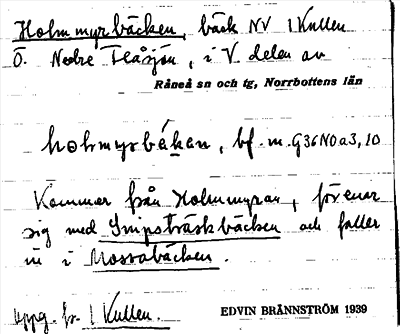 Holmmyrbäcken, bäck NV 1 Kullen
Ö. Nedre Flåsjön, i V. delen av
Råneå sn och tg, Norrbottens län
holmyrbäkan, bf. m. G36NOa3,10
Kommer från Holmmyran, förenar
sig med Snipsträskbäcken och faller
in i Mossabäcken.
Uppg. fr. 1 Kullen.
EDVIN BRÄNNSTRÖM 1939